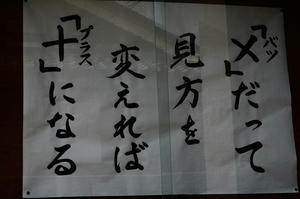 「×」だって
バツ
見方を
変えれば
「＋」になる
プラス